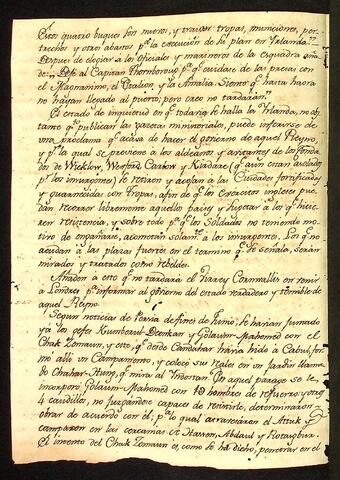 Estos quatro buques son nuevos, y traían tropas, municiones, per-
trechos y otros abastos pª la execucion de su plan en Irlanda.
Despues de elogiar a los oficiales y marineros de la esquadra aña-
de: Dejé al Capitan Thornborough pª q.e cuidase de las presas con
el Magnanimo, el Etalion, y la Amalia. Siento q.e hasta haora
no hayan llegado al puerto, pero creo no tardarán.
El estado de inquietud en q.e todavia se halla la Irlanda, no obs-
tante q.e publican las gacetas ministeriales, puede inferirse de
una proclama q.e acaba de hacer el gobierno de aquel Reyno,
y pª la qual se previene a los aldeanos y avitantes de los Conda-
dos de Wicklow, Wexford, Carlow y Kindare (q.e aun estan
pª los insurgentes) se retiren y acojan a las Ciudades fortificadas
y guarnecidas con tropas, afin de q.e los exercitos ingleses pue-
dan recorrer libremente aquellos paises y sujetar a los q.e hicie-
ren resistencia, y sobre todo pª q.e los Soldados no teniendo mo-
tivo de engañarse, acometan solam.te a los insurgentes. Los q.e no
acudan a las plazas fuertes en el termino q.e se señala, serán
mirados y tratados como rebeldes.
Añaden a esto q.e no tardará el Marq.s Cornwallis en venir
a Londres pª informar al gobierno del estado verdadero y temible de
aquel Reyno.
Segun noticias de Persia de fines de Junio, se havian
ya los gefes y Golaum-Mahomed con el
Chak Zomaun, y este, q.e desde Candahar havia hido a Cabul, for-
mó alli un Campamento, y colocó sus reales en un jardin llama-
do q.e mira al Yndostan. En aquel parage se le
incorporó Golaum-Mahomed con 10 hombres de refuerzo y otros
4 caudillos, no juzgandose capaces de resistirle, determinaron
obrar de acuerdo con el; pª lo qual atravesaron el Attok y
camparon en las cercanias de Hassen, Abdaul y
El intento del Chak Zomaun es, como se ha dicho, penetrar en el